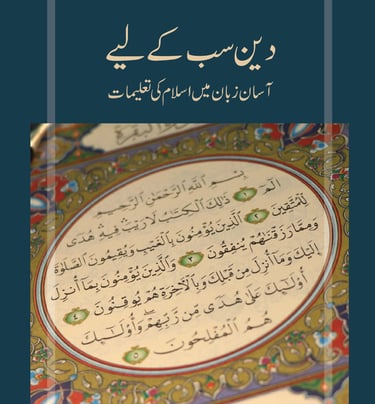 دین سب کے لیے
آسان زبان میں اسلام کی تعلیمات
بِسْمِ اللَّهِ الرَّحْمَٰنِ الرَّحِيمِ
الم ١ ذَٰلِكَ الْكِتَابُ لَا رَيْبَ فِيهِ هُدًى
لِلْمُتَّقِينَ ٢ الَّذِينَ يُؤْمِنُونَ بِالْغَيْبِ وَيُقِيمُونَ الصَّلَوٰةَ
وَمِمَّا رَزَقْنَاهُمْ يُنْفِقُونَ ٣ وَالَّذِينَ يُؤْمِنُونَ بِمَا أُنْزِلَ
إِلَيْكَ وَمَا أُنْزِلَ مِنْ قَبْلِكَ وَبِالْآخِرَةِ هُمْ يُوقِنُونَ ٤
أُولَٰئِكَ عَلَىٰ هُدًى مِنْ رَبِّهِمْ وَأُولَٰئِكَ
هُمُ الْمُفْلِحُونَ ٥